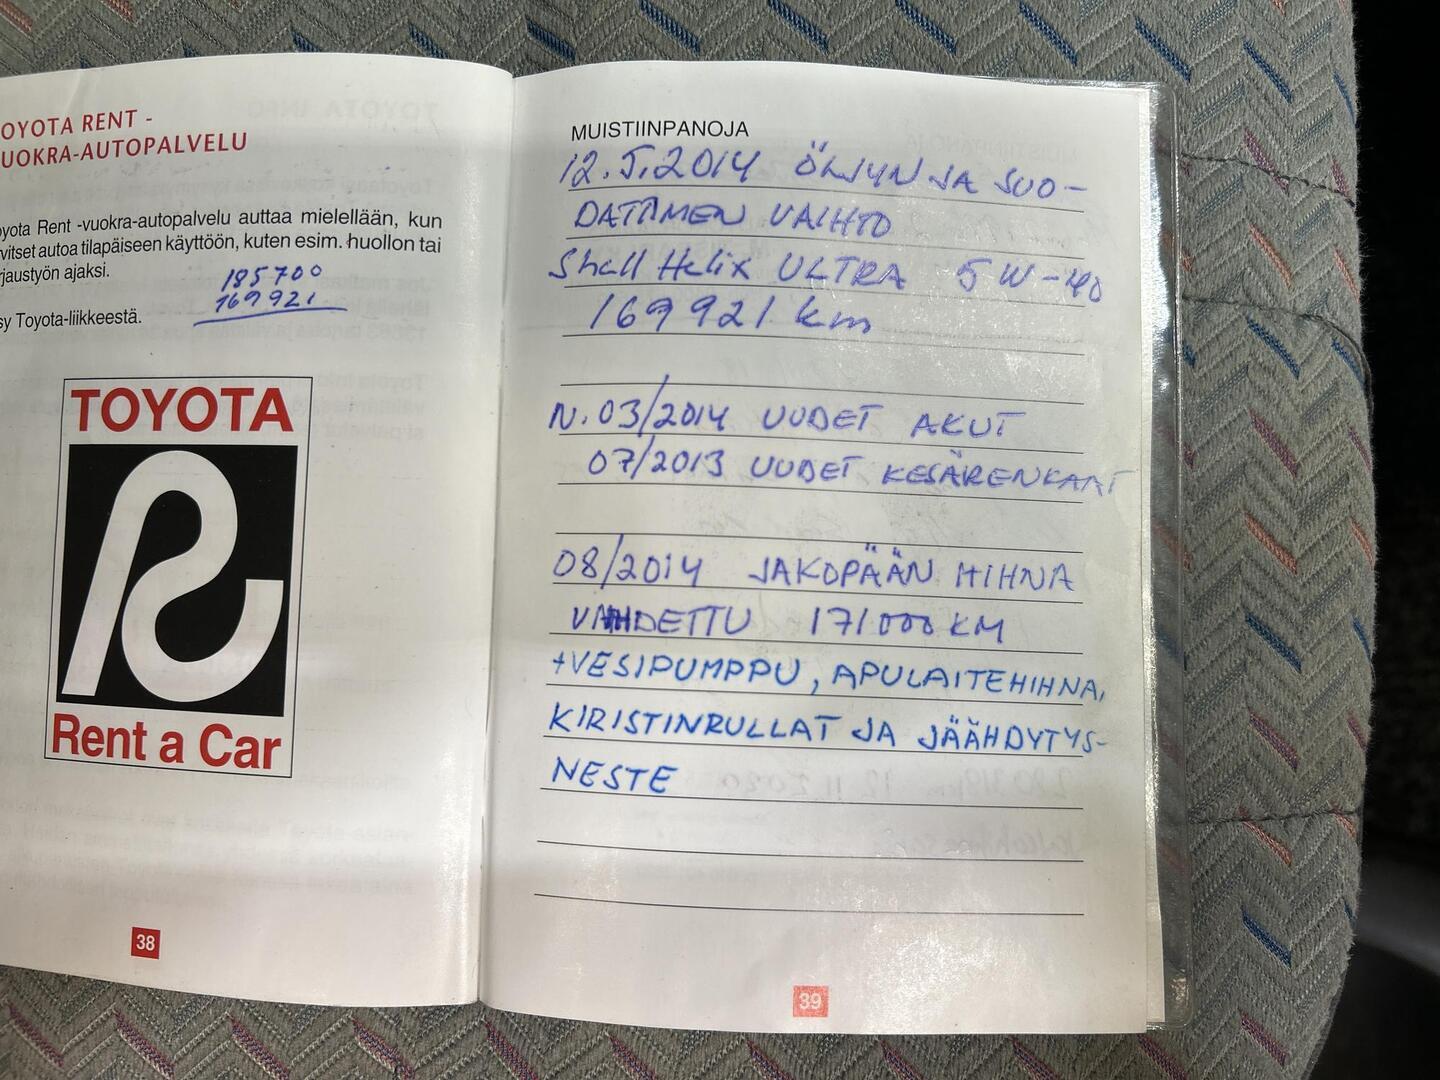 OYOTA RENT -
UOKRA-AUTOPALVELU
oyota Rent -vuokra-autopalvelu auttaa mielellään, kun
rvitset autoa tilapäiseen käyttöön, kuten esim. huollon tai
rjaustyön ajaksi.
185700
169921
sy Toyota-liikkeestä.
TOYOTA
R
Rent a Car
38
MUISTIINPANOJA
12.5.2014 ÖLJYN JA SUO-
DATTIMEN VAIHTO
Shell Helix ULTRA 5W-40
169921 km
N. 03/2014 UUDET AKUT
07/2013 UUDET KESÄRENKAAT
08/2014 JAKOPÄÄN HIHNA
VAIHDETTU 171000 KM
+VESIPUMPPU, APULAITEHIHNA,
KIRISTINRULLAT JA JÄÄHDYTYS-
NESTE
39